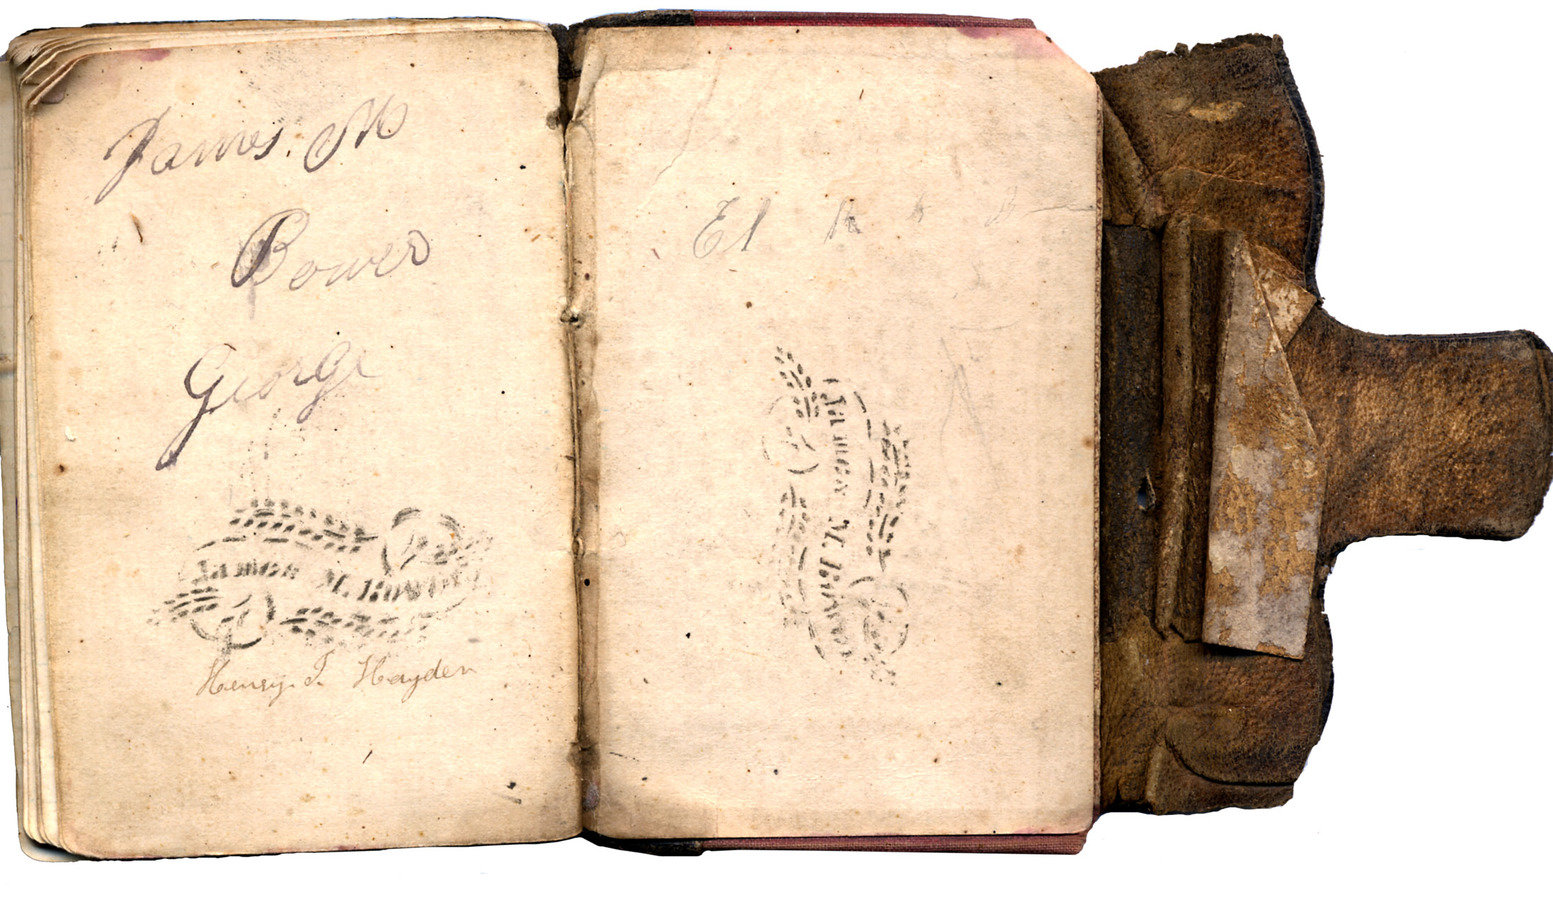 James. M
Bower
George
James M. Bower
Henry. T. Hayden
El
James M. Bower